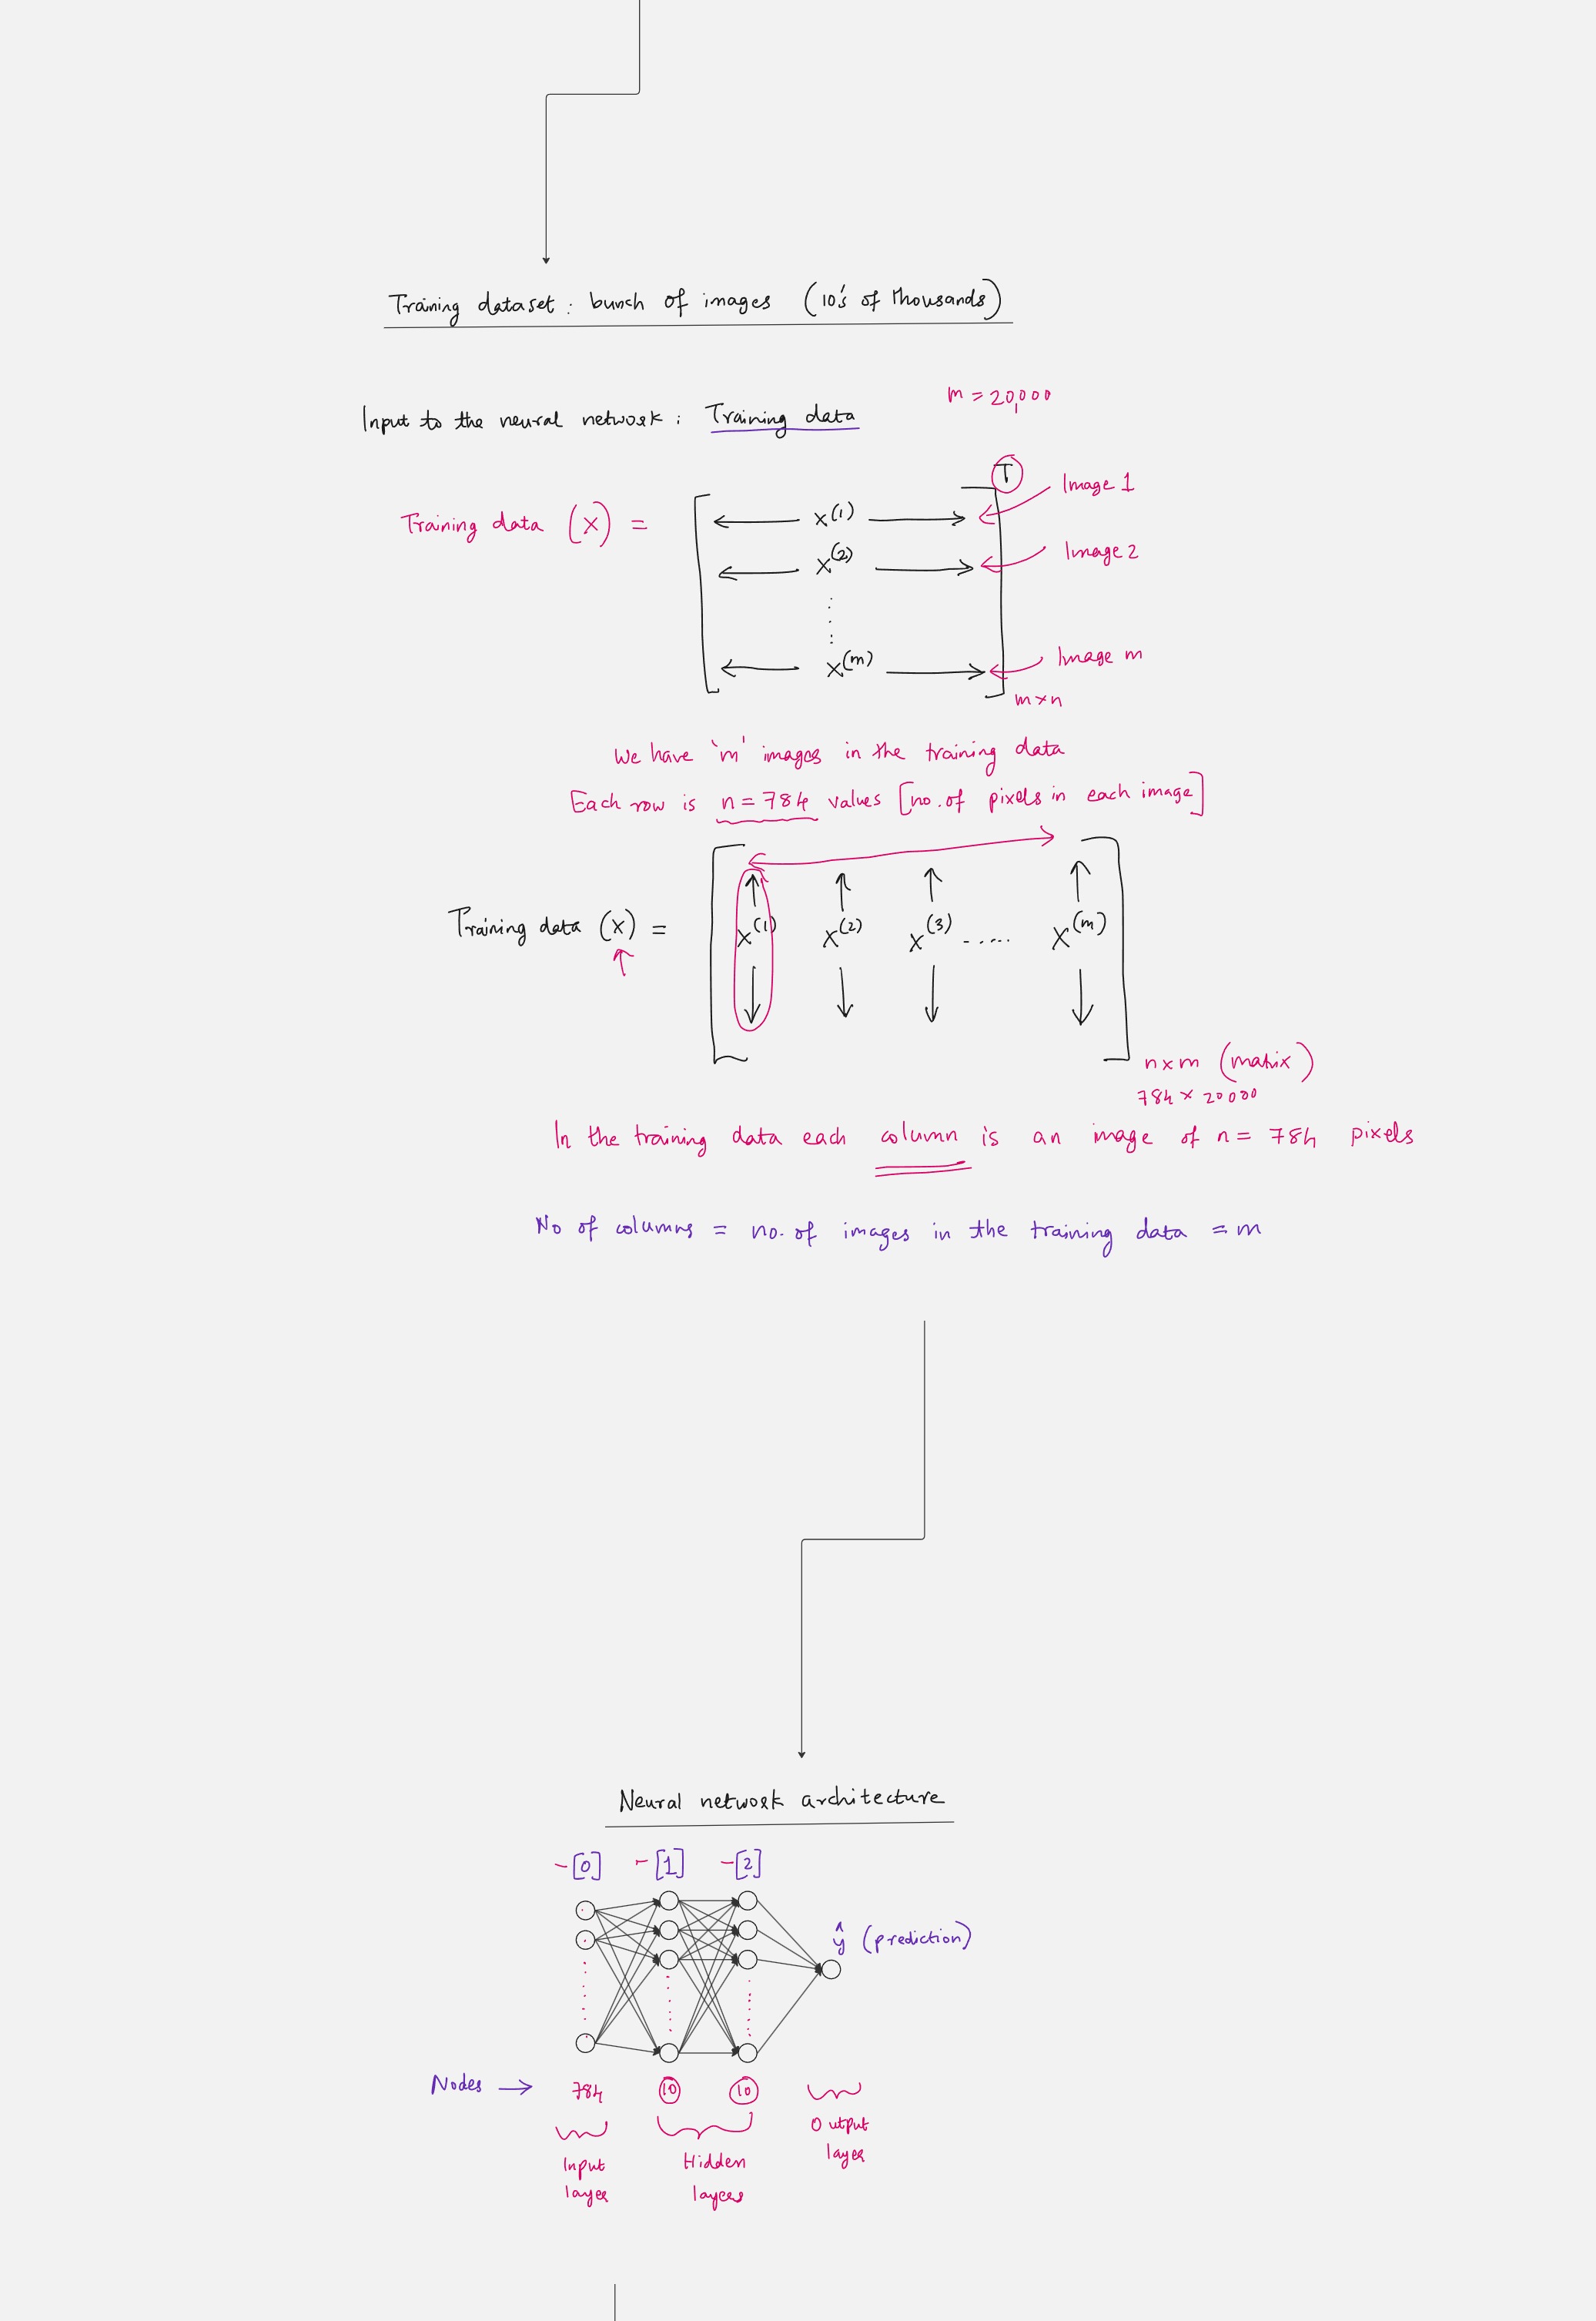 Training dataset : bunch of images (10's of thousands)
m = 20,000
Input to the neural network : Training data
T
Training data (X) =
x^(1)
Image 1
x^(2)
Image 2
x^(m)
Image m
m×n
We have 'm' images in the training data
Each row is n = 784 values [no. of pixels in each image]
Training data (X) = x^(1) x^(2) x^(3) ..... x^(m)
n×m (matrix)
784 × 20000
In the training data each column is an image of n = 784 pixels
No of columns = no. of images in the training data = m
Neural network architecture
-[0] -[1] -[2]
ŷ (prediction)
Nodes → 784 10 10
Output
layer
Input
layer
Hidden
layers